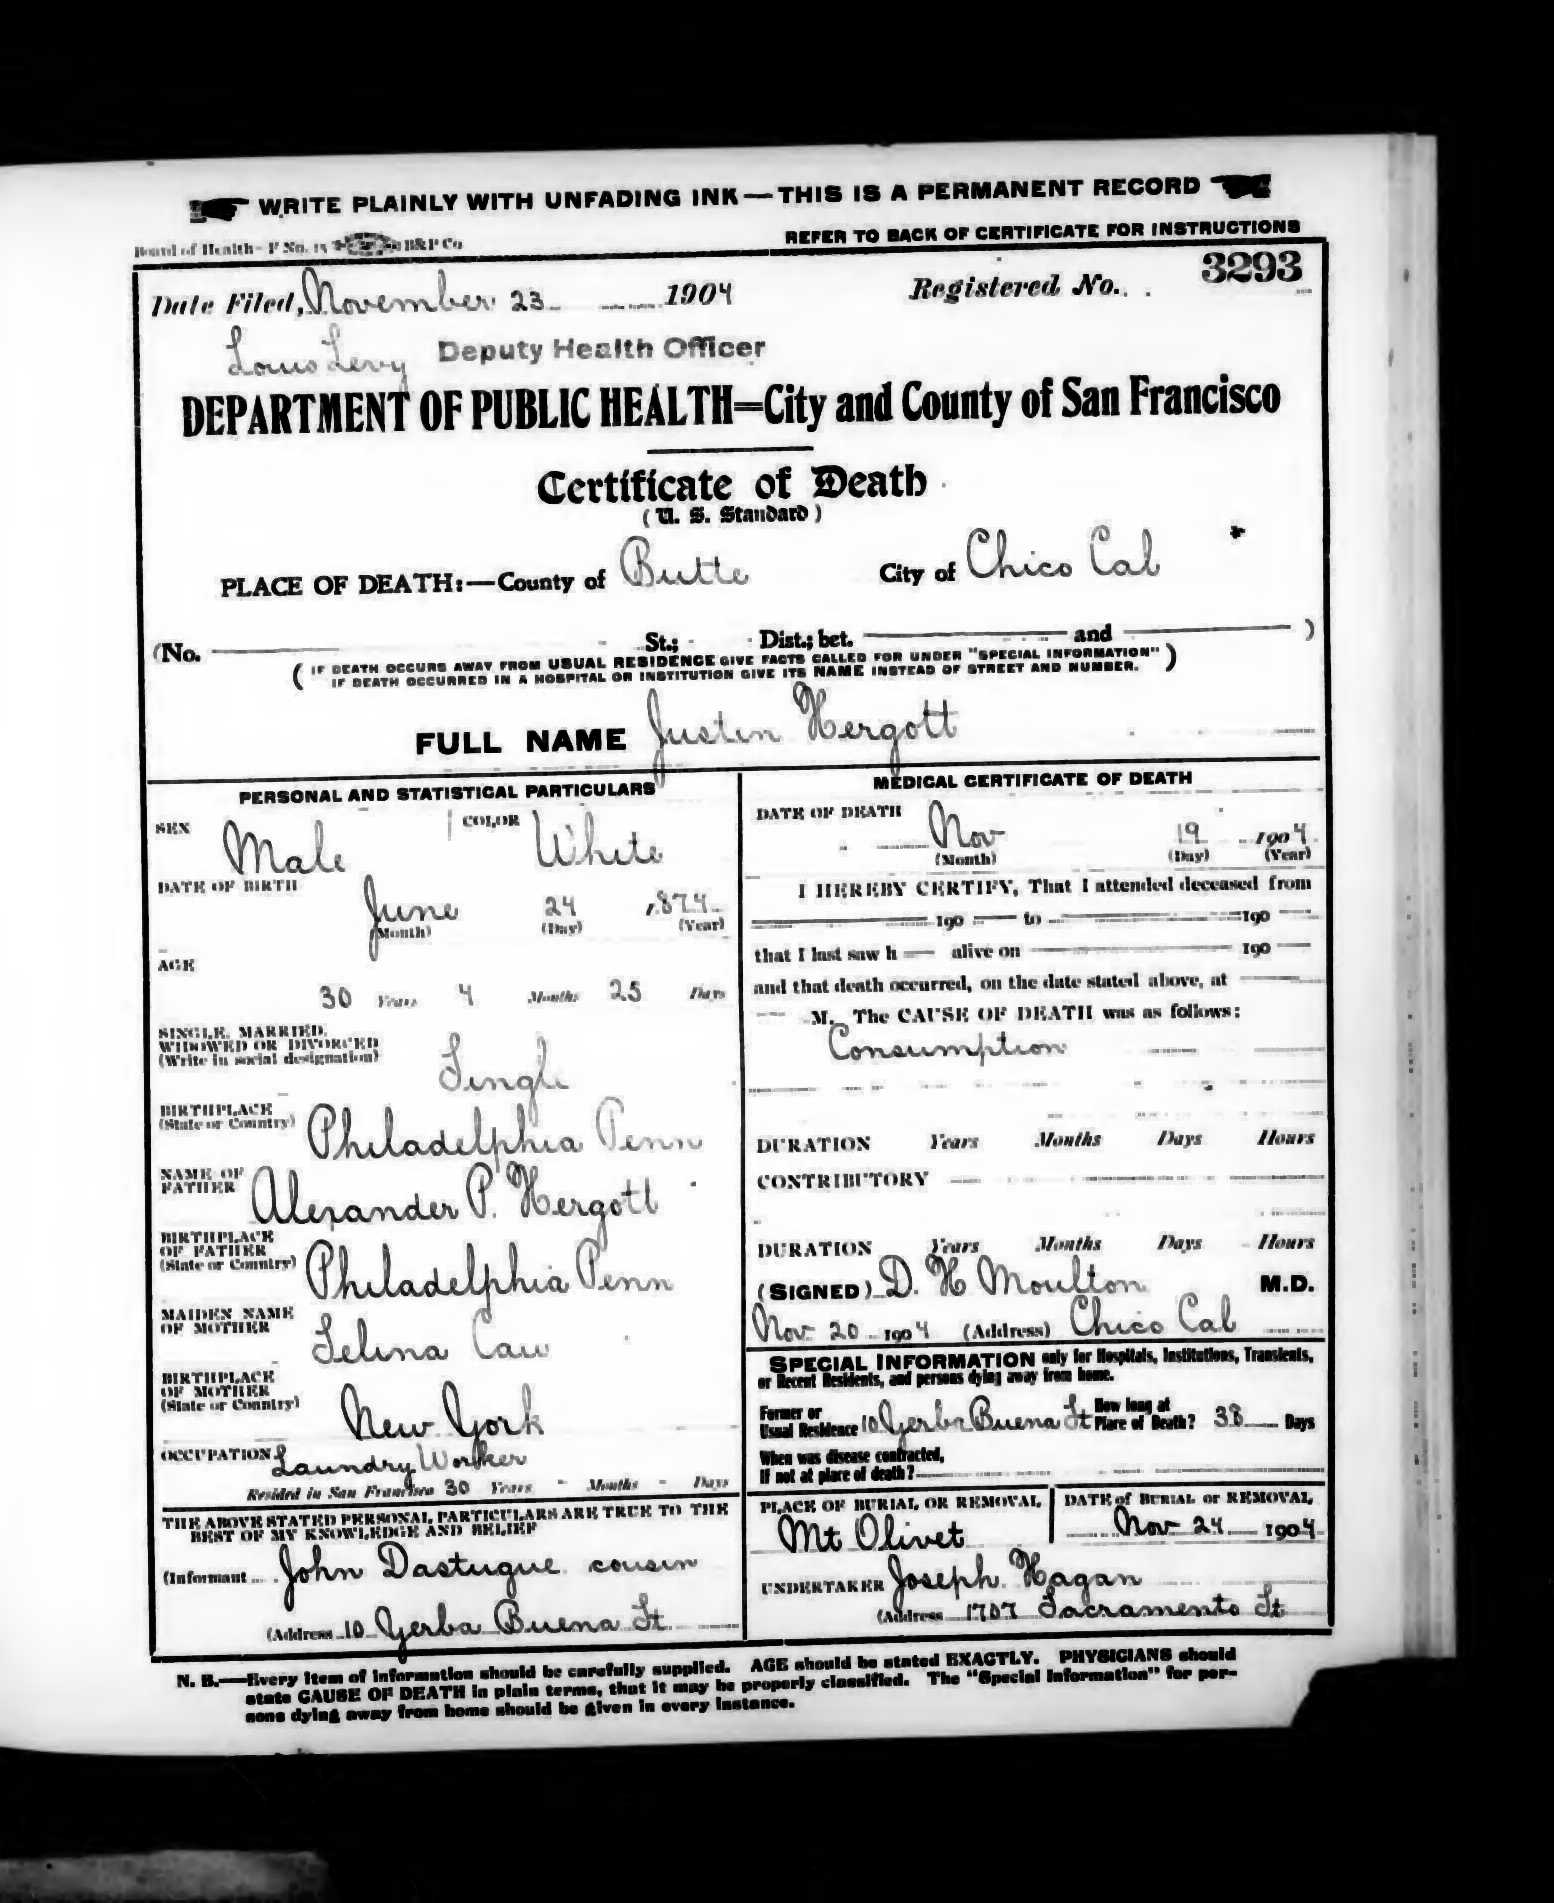 WRITE PLAINLY WITH UNFADING INK—THIS IS A PERMANENT RECORD
Board of Health—F No. 15 B&P Co
REFER TO BACK OF CERTIFICATE FOR INSTRUCTIONS
Date Filed, November 23 1904 Registered No. 3293
Louis Levy Deputy Health Officer
DEPARTMENT OF PUBLIC HEALTH=City and County of San Francisco
Certificate of Death
(U. S. Standard)
PLACE OF DEATH:—County of Butte City of Chico Cal
(No. St.; Dist.; bet. and )
(IF DEATH OCCURS AWAY FROM USUAL RESIDENCE GIVE FACTS CALLED FOR UNDER "SPECIAL INFORMATION"
IF DEATH OCCURRED IN A HOSPITAL OR INSTITUTION GIVE ITS NAME INSTEAD OF STREET AND NUMBER.)
FULL NAME Justin Hergott
PERSONAL AND STATISTICAL PARTICULARS
SEX Male COLOR White
DATE OF BIRTH
June 24 1874
(Month) (Day) (Year)
AGE
30 Years 4 Months 25 Days
SINGLE, MARRIED,
WIDOWED OR DIVORCED
(Write in social designation) Single
BIRTHPLACE
(State or Country) Philadelphia Penn
NAME OF
FATHER Alexander P. Hergott
BIRTHPLACE
OF FATHER
(State or Country) Philadelphia Penn
MAIDEN NAME
OF MOTHER Selina Caw
BIRTHPLACE
OF MOTHER
(State or Country) New York
OCCUPATION Laundry Worker
Resided in San Francisco 30 Years - Months - Days
THE ABOVE STATED PERSONAL PARTICULARS ARE TRUE TO THE
BEST OF MY KNOWLEDGE AND BELIEF
(Informant John Dastugue cousin
(Address 10 Yerba Buena St
MEDICAL CERTIFICATE OF DEATH
DATE OF DEATH
Nov 19 1904
(Month) (Day) (Year)
I HEREBY CERTIFY, That I attended deceased from
190 to 190
that I last saw h alive on 190
and that death occurred, on the date stated above, at
M. The CAUSE OF DEATH was as follows:
Consumption
DURATION Years Months Days Hours
CONTRIBUTORY
DURATION Years Months Days Hours
(SIGNED) D. H Moulton M.D.
Nov 20 1904 (Address) Chico Cal
SPECIAL INFORMATION only for Hospitals, Institutions, Transients,
or Recent Residents, and persons dying away from home.
Former or
Usual Residence 10 Yerba Buena St How long at
Place of Death? 38 Days
When was disease contracted,
If not at place of death?
PLACE OF BURIAL OR REMOVAL
Mt Olivet
DATE of BURIAL or REMOVAL
Nov 24 1904
UNDERTAKER Joseph Hagan
(Address 1707 Sacramento St
N. B.—Every item of information should be carefully supplied. AGE should be stated EXACTLY. PHYSICIANS should
state CAUSE OF DEATH in plain terms, that it may be properly classified. The "Special Information" for per-
sons dying away from home should be given in every instance.